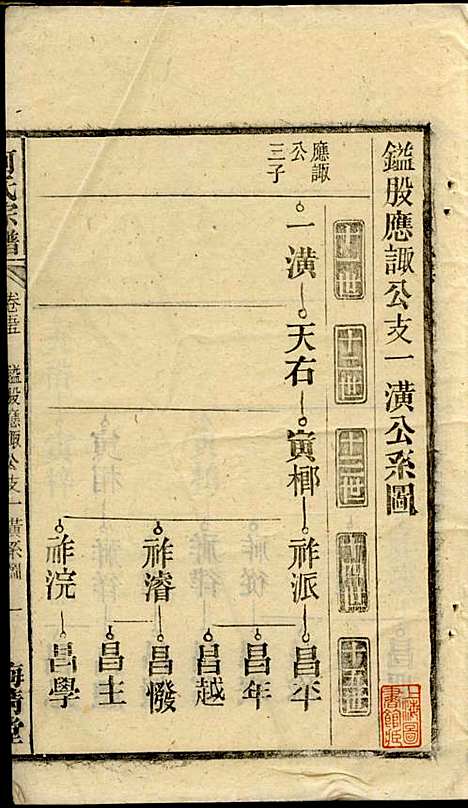 鎰股應諏公支一潢公系圖
十二世
十三世
十五世
應諏
公
三子
一潢
天右
寅梛
祚派
祚濬
祚浣
昌平
昌年
昌越
昌撥
昌主
昌學
氏宗譜
卷五
鎰股應諏公支一潢系圖
一
上海圖
書館藏